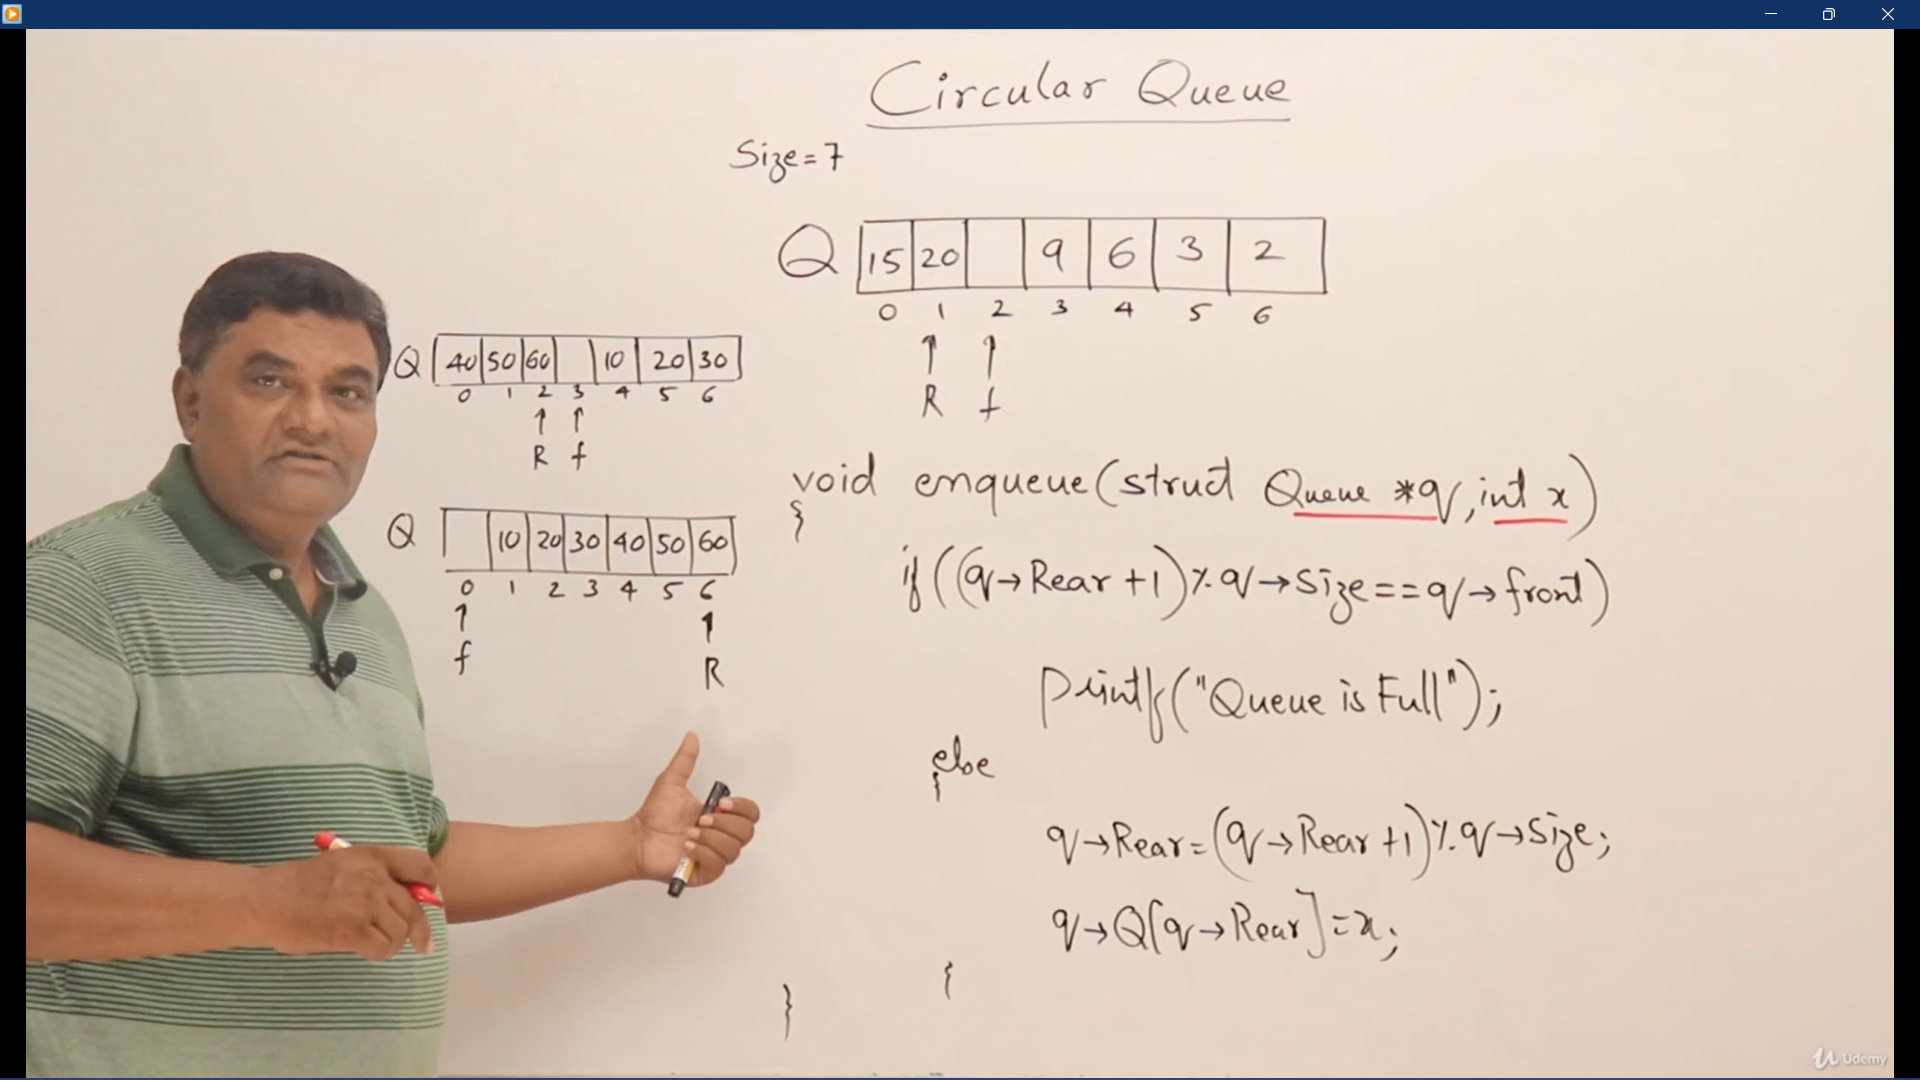 Circular Queue
Size=7
Q 15 20 9 6 3 2
0 1 2 3 4 5 6
R f
Q 40 50 60 10 20 30
0 1 2 3 4 5 6
R f
Q 10 20 30 40 50 60
0 1 2 3 4 5 6
f R
void enqueue(struct Queue *q,int x)
{
if((q→Rear+1)%q→Size==q→front)
printf("Queue is Full");
else
{
q→Rear=(q→Rear+1)%q→Size;
q→Q[q→Rear]=x;
{
}
Udemy